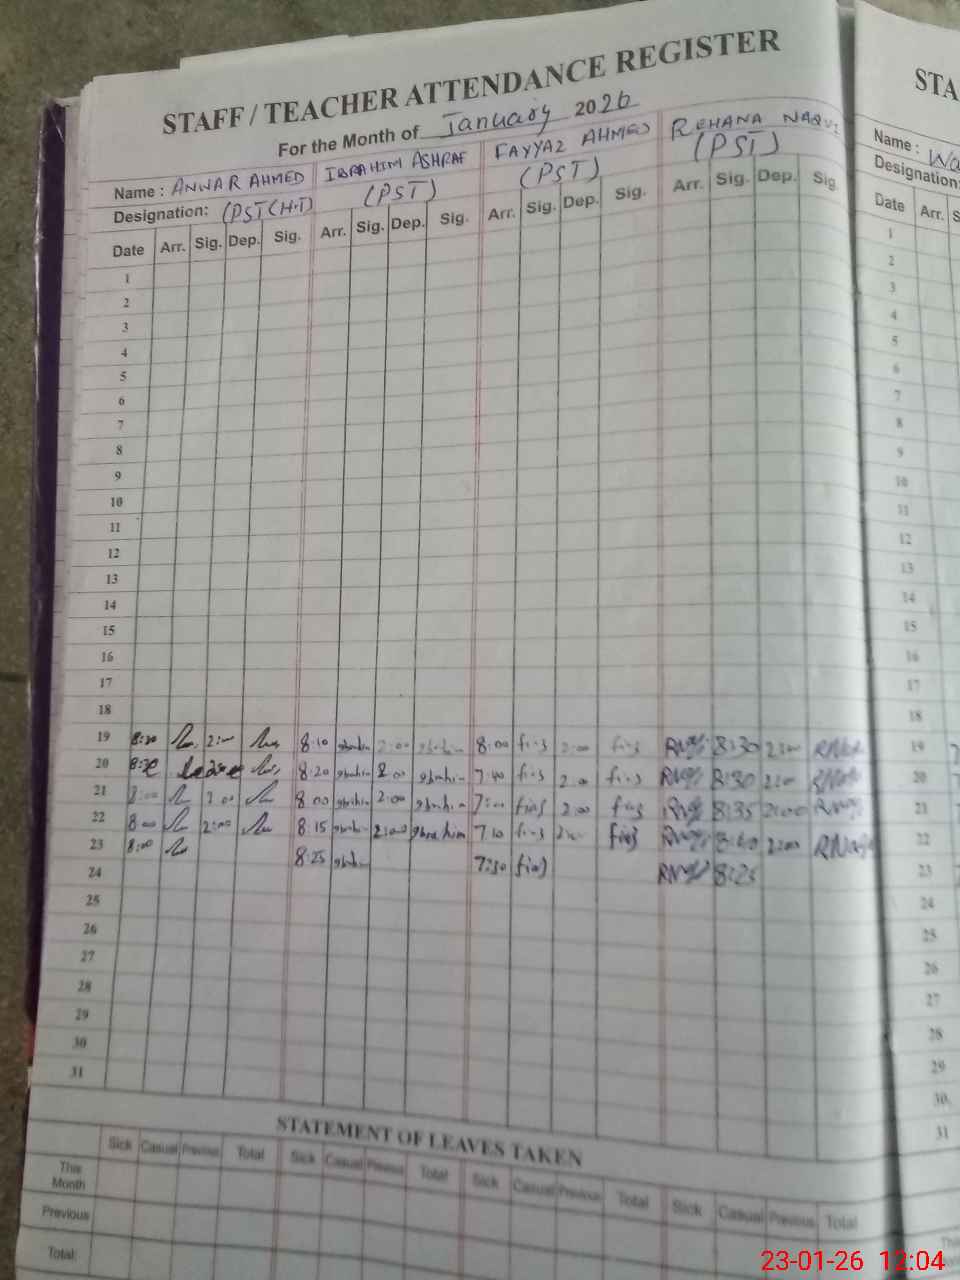 STAFF / TEACHER ATTENDANCE REGISTER
For the Month of January 2026
Name : ANWAR AHMED IBRAHIM ASHRAF FAYYAZ AHMED REHANA NAQVI
Designation: (PST (H.T) (PST) (PST) (PST)
Date Arr. Sig. Dep. Sig. Arr. Sig. Dep. Sig. Arr. Sig. Dep. Sig. Arr. Sig. Dep. Sig.
1
2
3
4
5
6
7
8
9
10
11
12
13
14
15
16
17
18
19 2:00 8:10 2:00 8:00 2:00 8:30 2:00
20 leave 8:20 2:00 7:40 2:00 8:30 2:00
21 8:00 2:00 8:00 2:00 7:00 2:00 8:35 2:00
22 8:00 2:00 8:15 2:00 7:10 2:00 8:40 2:00
23 8:00 8:25 7:30 8:25
24
25
26
27
28
29
30
31
STATEMENT OF LEAVES TAKEN
Sick Casual Previous Total Sick Casual Previous Total Sick Casual Previous Total Sick Casual Previous Total
This Month
Previous
Total:
STA
Name : Wa
Designation:
Date Arr. S
1
2
3
4
5
6
7
8
9
10
11
12
13
14
15
16
17
18
19
20
21
22
23
24
25
26
27
28
29
30
31
23-01-26 12:04